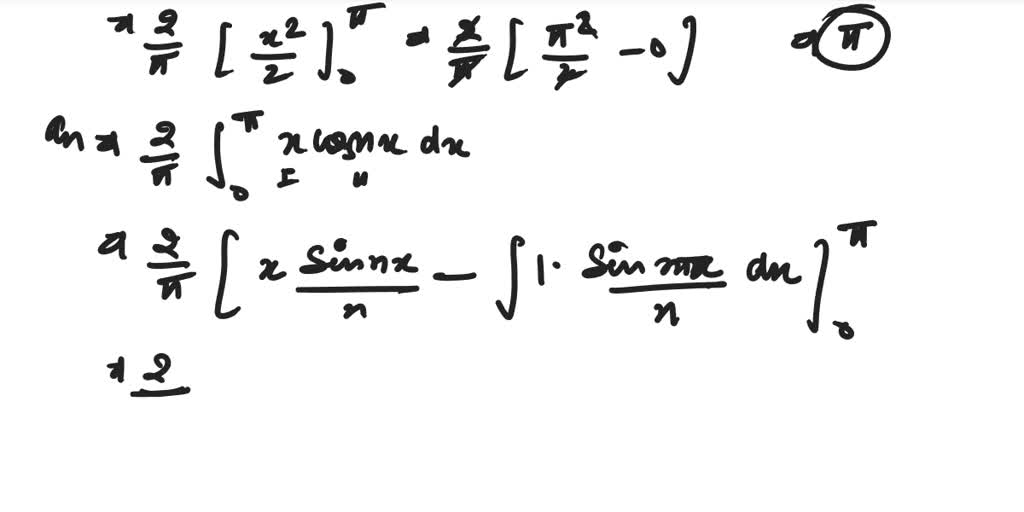 ⇒ 2/π [x²/2]₀^π ⇒ 2/π [π²/2 − 0] ⇒ π
an ⇒ 2/π ∫₀^π x cosnx dx
I II
⇒ 2/π [x Sinnx/n − ∫1· Sin nx/n dx]₀^π
⇒ 2